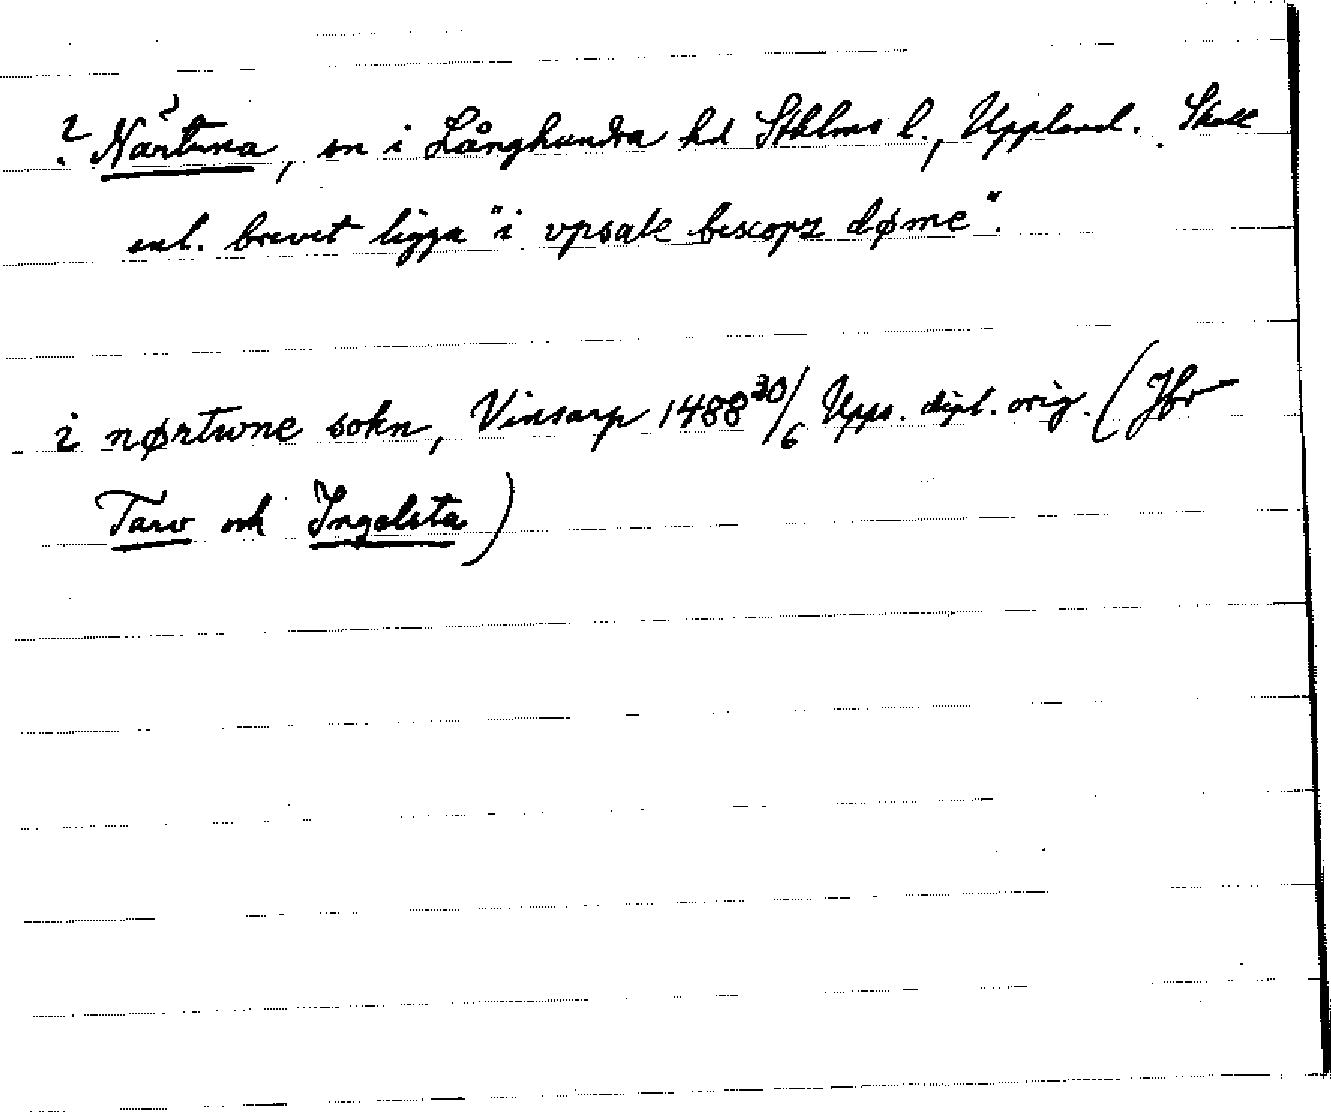 ? Närtuna, sn i Långhundra hd Sthlms l., Uppland. Skall
enl. brevet ligga "i vpsale biscops døme".
i nørtwne sokn, Vinsarp 1488 30/6 Upps. dipl. orig. (Jfr
Tarv och Ingelsta)